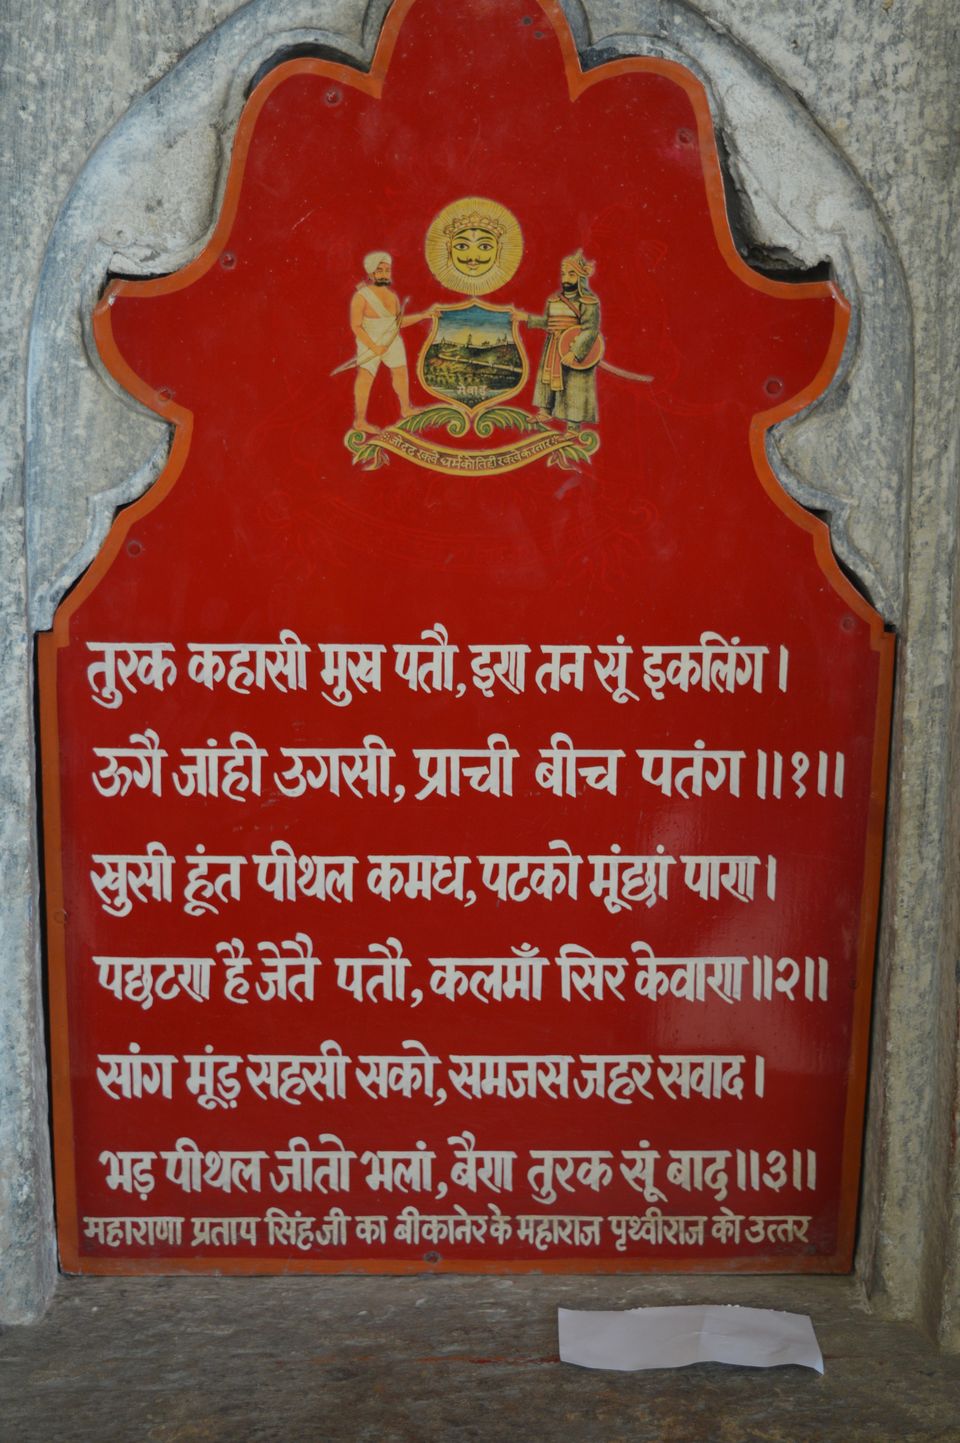 मेवाड़
जो दृढ रक्खे धर्म को तिहीं रक्खे करतार
तुरक कहासी मुख पतौ, इण तन सूं इकलिंग।
ऊगै जांही उगसी, प्राची बीच पतंग॥१॥
खुसी हूंत पीथल कमध, पटको मूंछां पाण।
पछटण है जेतै पतौ, कलमाँ सिर केवाण॥२॥
सांग मूंड़ सहसी सको, समजस जहर सवाद।
भड़ पीथल जीतो भलां, बैण तुरक सूं बाद॥३॥
महाराणा प्रताप सिंह जी का बीकानेर के महाराज पृथ्वीराज को उत्तर